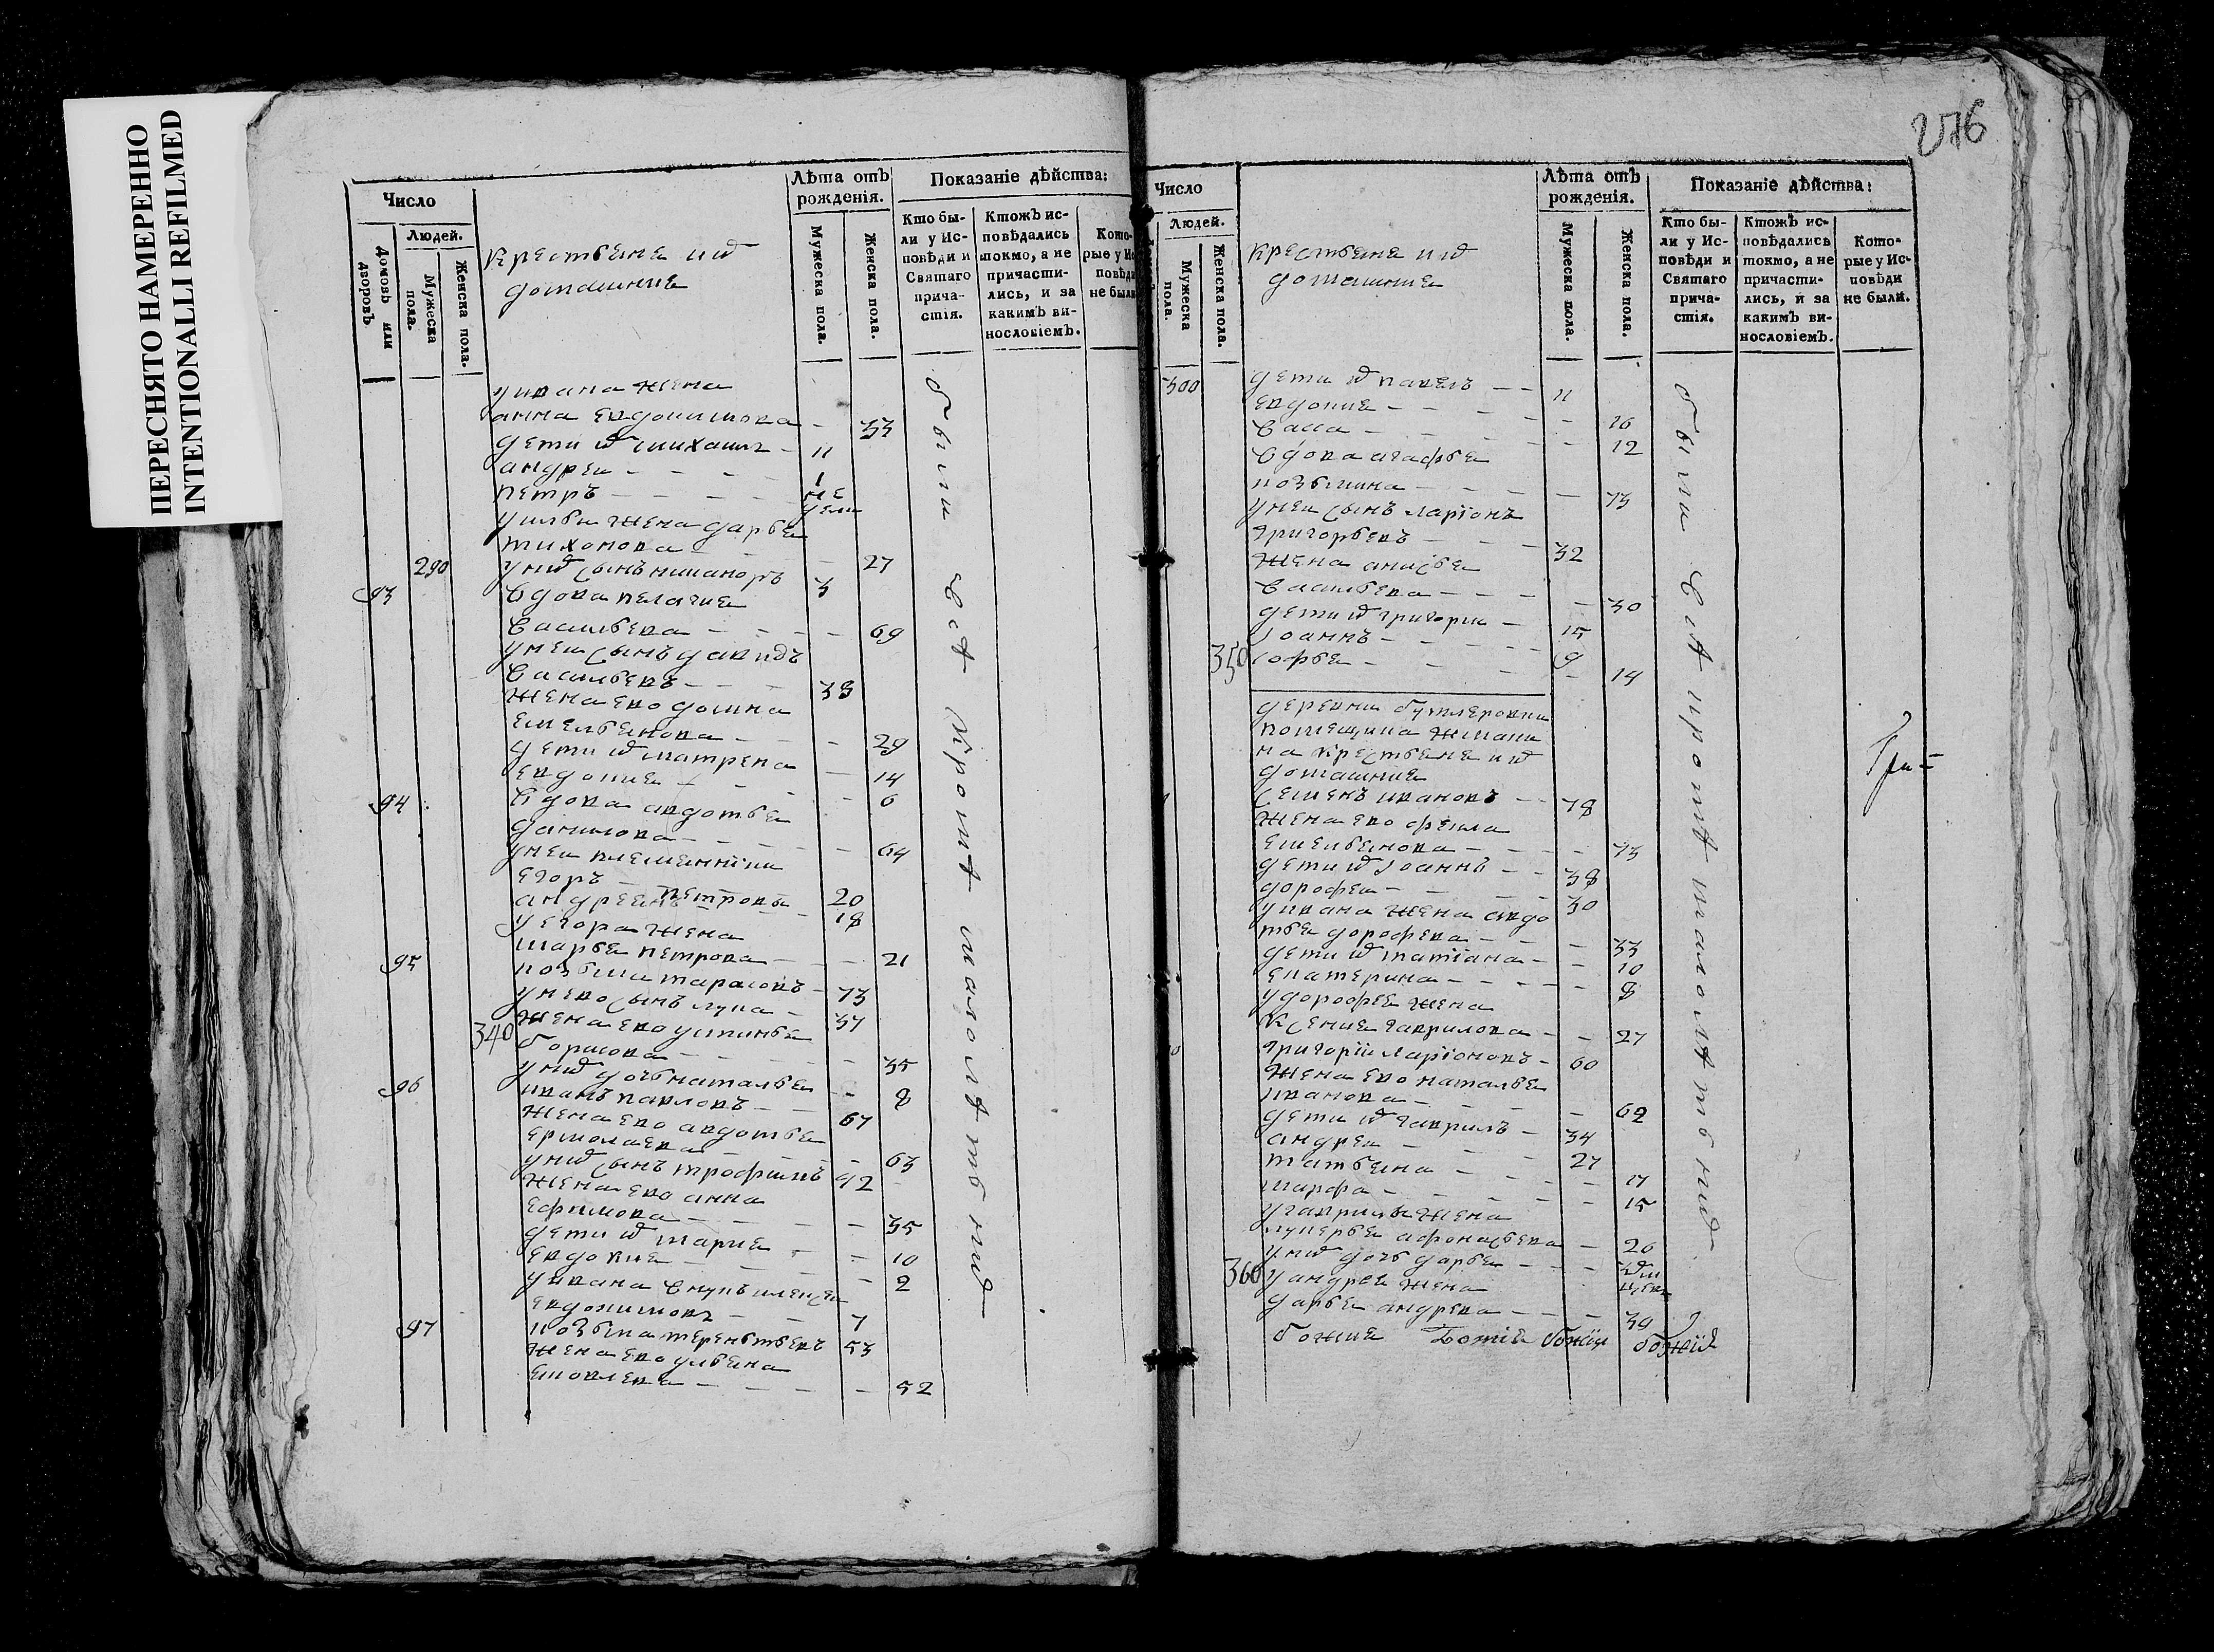 ПЕРЕСНЯТО НАМЕРЕННО
INTENTIONALLI REFILMED
Число
Людей.
Домовъ или дворовъ
Мужеска пола.
Женска пола.
крестьяне ихъ
домашние
Лѣта отъ рожденія.
Мужеска пола.
Женска пола.
Показаніе дѣйства:
Кто были у Исповѣди и Святаго причастія.
Ктожъ исповѣдались токмо, а не причастились, и за какимъ винословіемъ.
были всѣ кромѣ малолѣтныхъ
уивана жена
анна евдокимова - 33
дети ихъ михаилъ - 11
андреи - 1
петръ - не дели
уильи жена дарья
тихонова - 27
290 унихъ сынъ никаноръ 3
93 вдова пелагия
васильева - 69
унеи сынъ давидъ
васильевъ - 38
жена ево домна
емельянова - 29
дети ихъ матрена - 14
евдокия - 6
94 вдова авдотья
данилова - 64
унеи племянники
егоръ - 20
андреянъ петровы - 18
уегора жена
марья петрова - 21
95 козьма тарасовъ - 73
унево сынъ лука - 37
340 жена ево устинья
борисова - 35
унихъ дочь наталья - 8
96 иванъ павловъ - 67
жена ево авдотья
ермолаева - 63
унихъ сынъ трофимъ 42
жена ево анна
ефимова - 35
дети ихъ мария - 10
евдокия - 2
уивана внукъ алексеи
евдокимовъ - 7
97 козьма терентьевъ 53
жена ево ульяна
яковлева - 52
276
Число
Людей.
Мужеска пола.
Женска пола.
крестьяне ихъ
домашние
Лѣта отъ рожденія.
Мужеска пола.
Женска пола.
Показаніе дѣйства:
Кто были у Исповѣди и Святаго причастія.
Ктожъ исповѣдались токмо, а не причастились, и за какимъ винословіемъ.
Которые у Исповѣди не были.
были всѣ кромѣ малолѣтныхъ
Гри=
300 дети ихъ павелъ - 11
евдокия - 16
васа - 12
вдова агафья
козьмина - 73
унеи сынъ ларіонъ
григорьевъ - 32
жена анисья
васильева - 30
дети ихъ григори - 15
іоаннъ - 9
350 софья - 14
деревни бутлеровки
помещика жилани
на крестьяне ихъ
домашние
семенъ ивановъ - 78
жена ево фекла
емельянова - 73
дети ихъ іоаннъ - 38
дорофеи - 30
уивана жена авдо
тья дорофева - 33
дети ихъ татіана - 10
екатерина - 8
удорофея жена
ксения гаврилова - 27
григоріи ларіоновъ - 60
жена ево наталья
иванова - 62
дети ихъ гаврилъ - 34
андреи - 27
татьяна - 17
марфа - 15
угаврилы жена
лукерья афонасьева - 26
унихъ дочь дарья -
360 уандрея жена
дарья андрева - 30
божия Божія божіи божіихъ